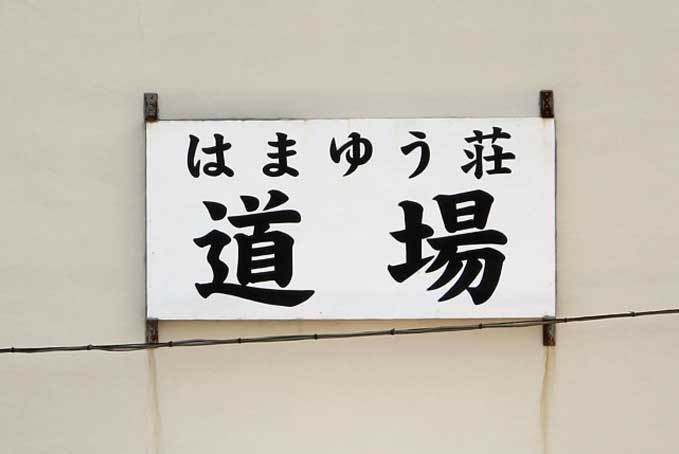 はまゆう荘
道場